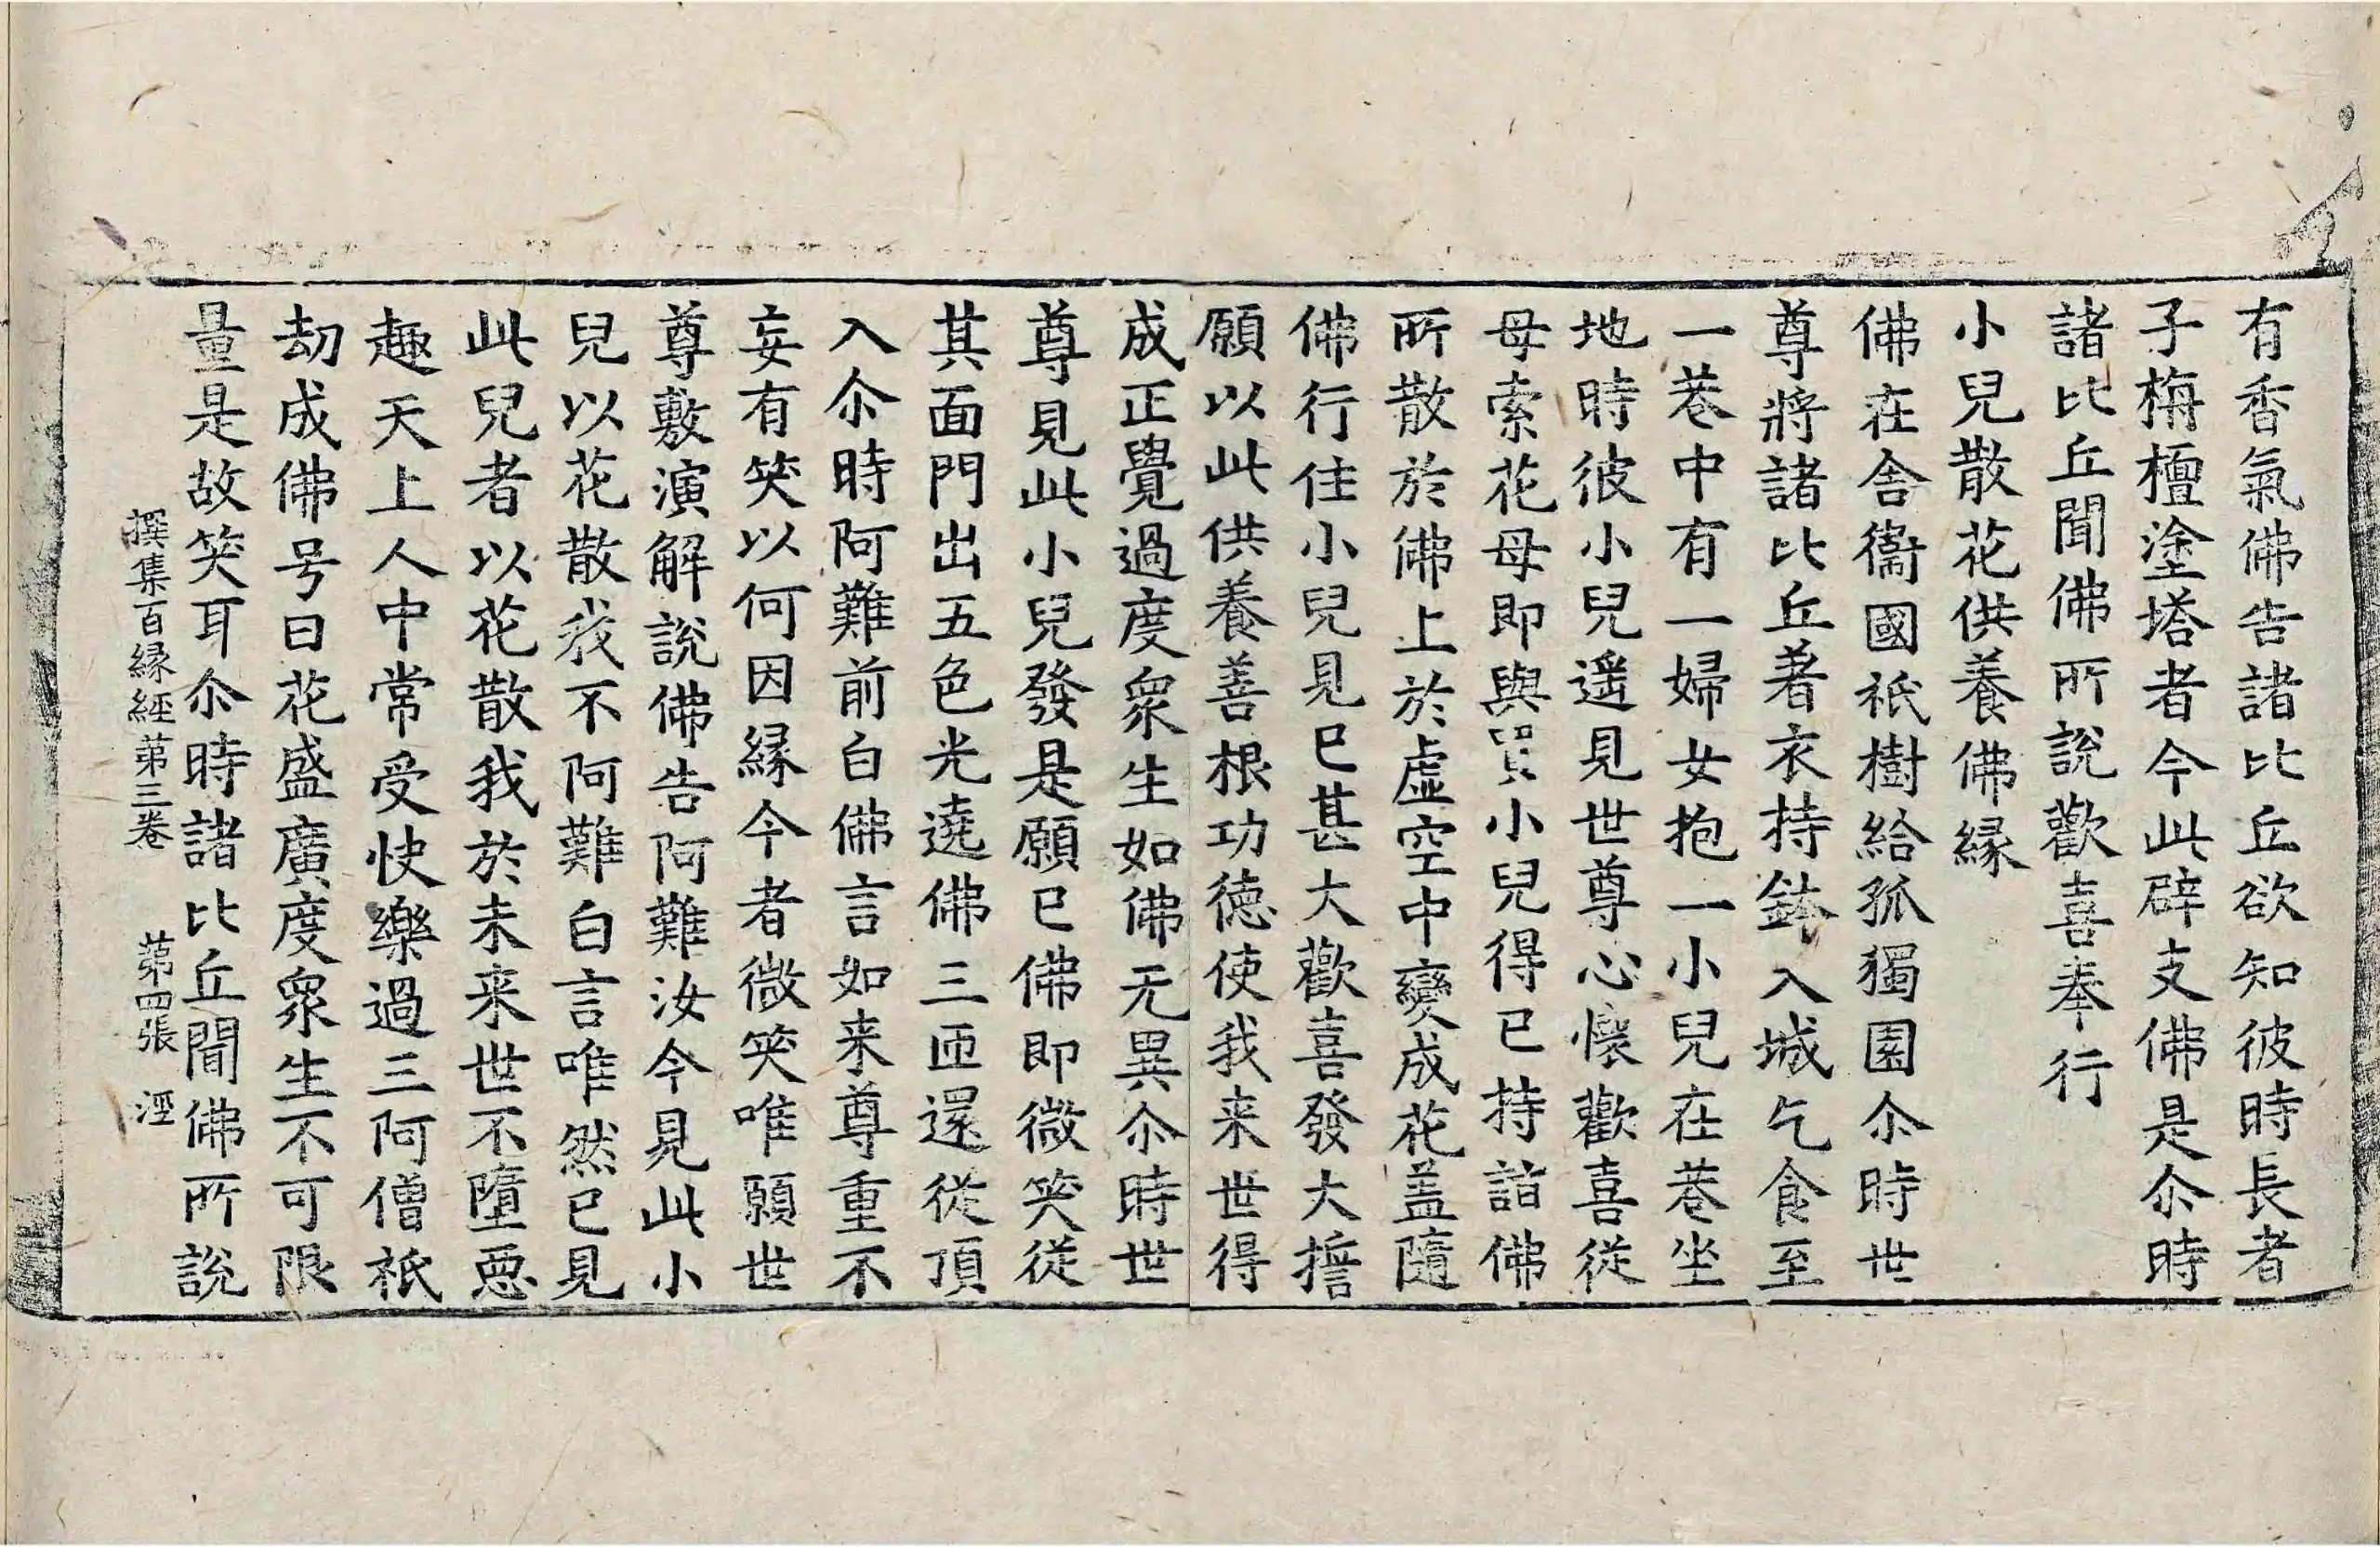 有香氣佛告諸比丘欲知彼時長者
子栴檀塗塔者今此辟支佛是尒時
諸比丘聞佛所說歡喜奉行
小兒散花供養佛縁
佛在舍衞國祇樹給孤獨園尒時世
尊將諸比丘著衣持鉢入城乞食至
一巷中有一婦女抱一小兒在巷坐
地時彼小兒遥見世尊心懷歡喜從
母索花母即與買小兒得已持詣佛
所散於佛上於虛空中變成花盖隨
佛行住小兒見已甚大歡喜發大擔
願以此供養善根功德使我来世得
成正覺過度衆生如佛无異尒時世
尊見此小兒發是願已佛即微笑從
其面門出五色光遶佛三匝還從頂
入尒時阿難前白佛言如来尊重不
妄有笑以何因縁今者微笑唯願世
尊敷演解說佛告阿難汝今見此小
兒以花散我不阿難白言唯然已見
此兒者以花散我於未来世不墮惡
趣天上人中常受快樂過三阿僧祇
劫成佛号曰花盛廣度衆生不可限
量是故笑耳尒時諸比丘聞佛所說
撰集百縁經第三卷 第四張 涇